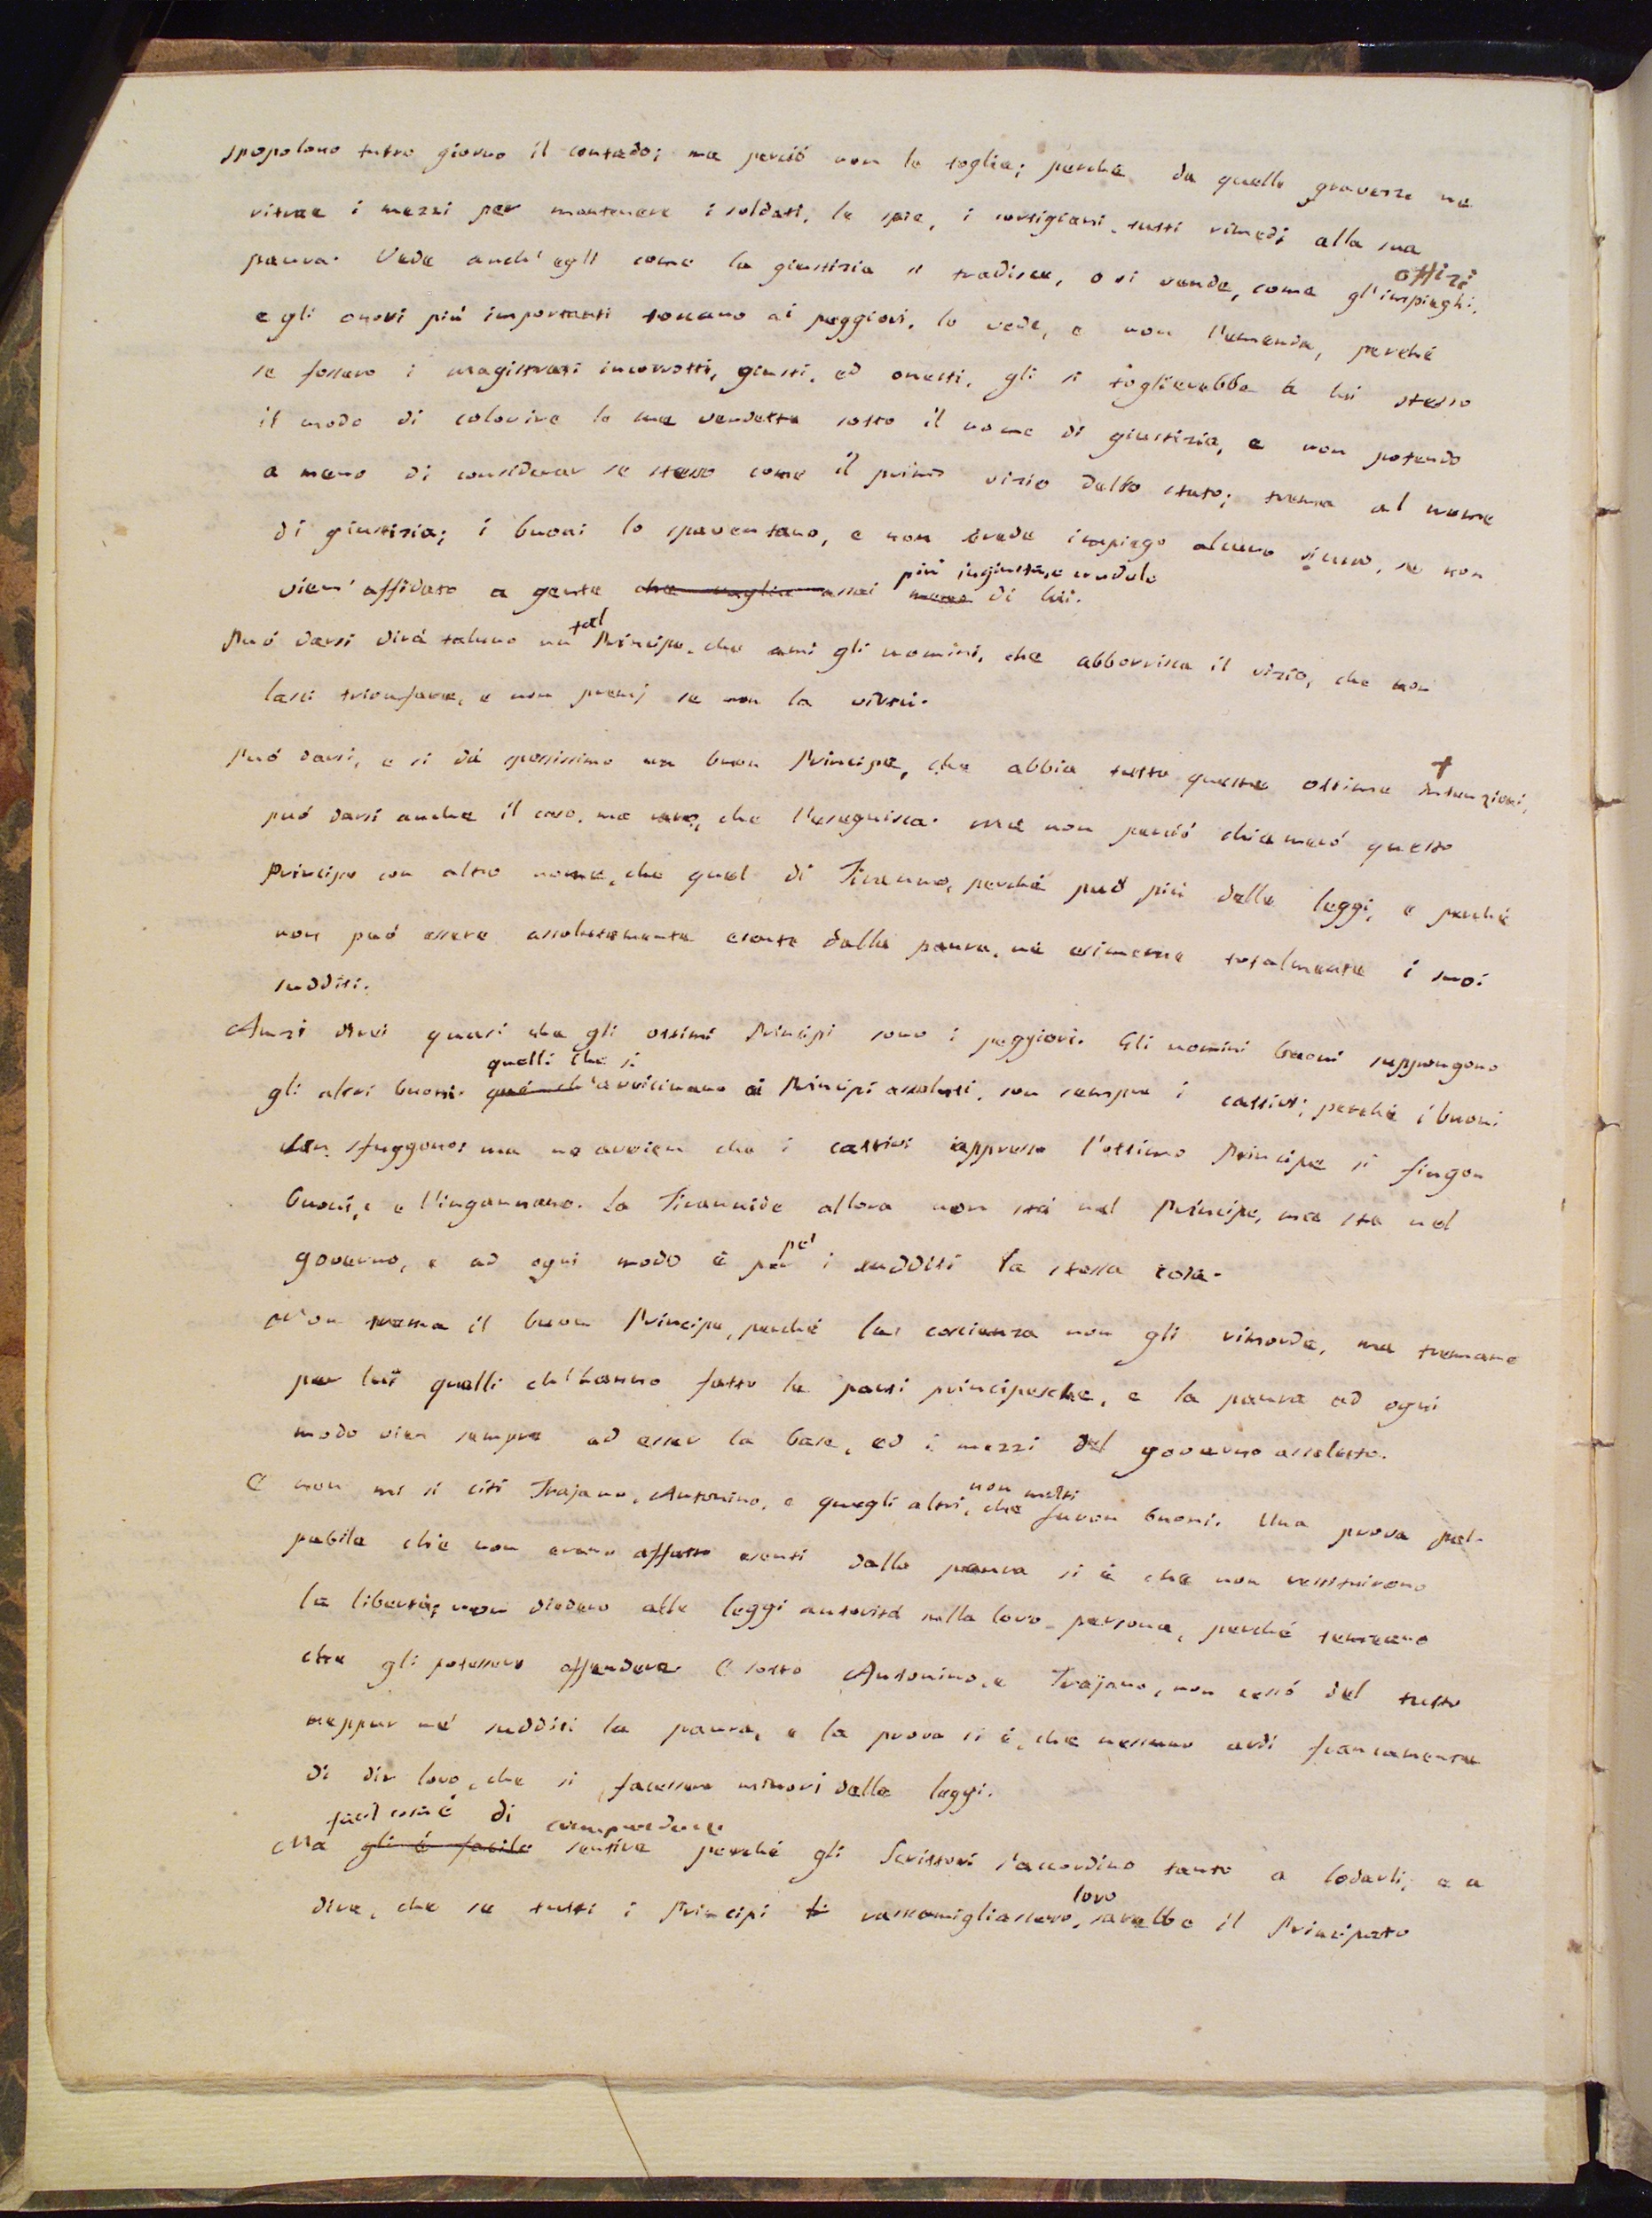 spopolano tutto giorno il contado; ma perciò non le toglie; perchè da quelle gravezze ne
ritrae i mezzi per mantenere i soldati, le spie, i cortigiani, tutti rimedj alla sua
offizi
paura. Vede anch'egli come la giustizia si tradisce, o si vende, come gl'impieghi,
e gli onori più importanti toccano ai peggiori, lo vede, e non l'emenda, perché
se fossero i magistrati incorrotti, giusti, ed onesti, gli si toglierebbe a lui stesso
il modo di colorire le sue vendette sotto il nome di giustizia, e non potendo
a meno di considerar se stesso come il primo vizio dello stato; trema al nome
di giustizia; i buoni lo spaventano, e non crede impiego alcuno sicuro, se non
più ingiusta, e crudele
vien' affidato a gente che voglia assai meno di lui.
tal
Può darsi dirà taluno un Principe, che ami gli uomini, che abborrisca il vizio, che non
lasci trionfare, e non premj se non la virtù.
Può darsi, e si dà spessissimo un buon Principe, che abbia tutte queste ottime intenzioni, +
può darsi anche il caso, ma raro, che l'eseguisca. ma non perciò chiamerò questo
Principe con altro nome, che quel di Tiranno, perché può più delle leggi, e perché
non può essere assolutamente esente dalla paura, nè esimerne totalmente i suoi
sudditi.
Anzi direi quasi che gli ottimi Principi sono i peggiori. Gli uomini buoni suppongono
quelli che si
gli altri buoni. què ch' avvicinano ai Principi assoluti, son sempre i cattivi; perchè i buoni
sfuggono: ma ne avvien che i cattivi appresso l'ottimo Principe si fingon
buoni, e l'ingannano. La Tirannide allora non stà nel Principe, ma sta nel
pei
governo, e ad ogni modo è per i sudditi la stessa cosa.
Non trema il buon Principe, perché la coscienza non gli rimorde, ma tremano
per lui quelli ch'hanno fatto le parti principesche, e la paura ad ogni
modo vien sempre ad esser la base, ed i mezzi del governo assoluto.
non molti
E non mi si citi Trajano, Antonino, e quegli altri, che furon buoni. Una prova pal-
pabile che non erano affatto esenti dalla paura si è che non restituirono
la libertà; non diedero alle leggi autorità sulla loro persona, perché temeano
che gli potessero offendere. E sotto Antonino, e Trajano, non cessò del tutto
neppur né sudditi la paura, e la prova si è, che nessuno ardì francamente
di dir loro, che si facessero minori delle leggi.
facil cosa è di comprendere
Ma gli è facile sentire perché gli Scrittori s'accordino tanto a lodarli, e a
loro
dire, che se tutti i Principi li rassomigliassero, sarebbe il Principato